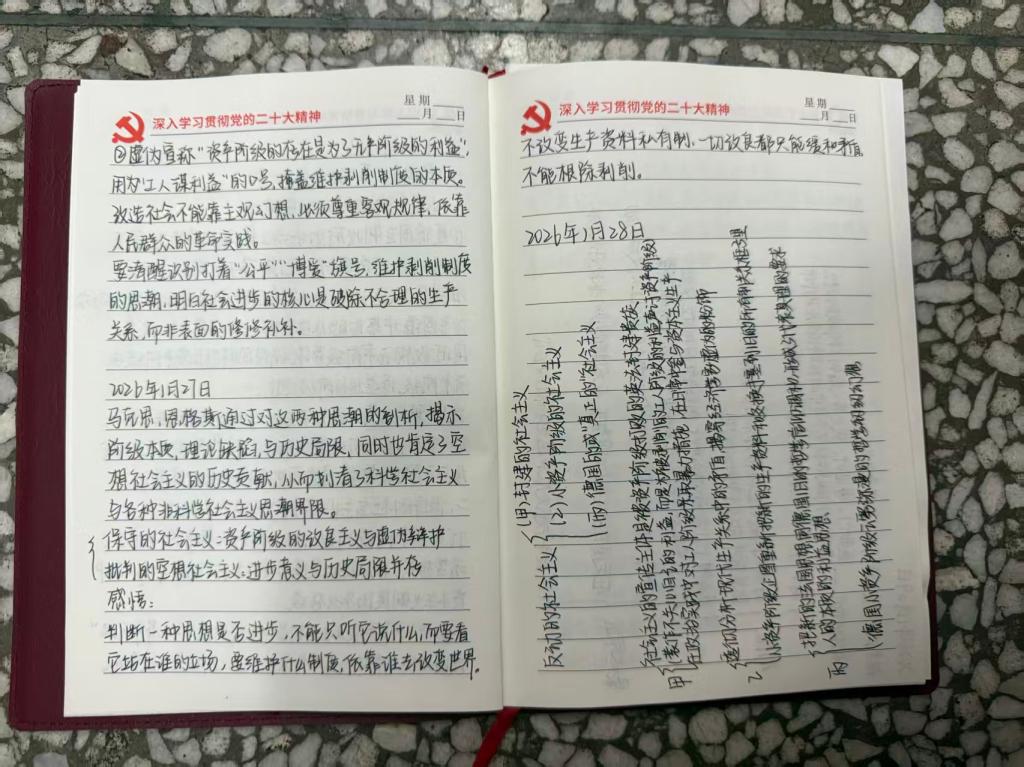 深入学习贯彻党的二十大精神
星期
月 日
②虚伪宣称“资产阶级的存在是为了无产阶级的利益”,
用为“工人谋利益”的口号,掩盖维护剥削制度的本质。
改造社会不能靠主观幻想,必须尊重客观规律,依靠
人民群众的革命实践。
要清醒识别打着“公平”“博爱”旗号,维护剥削制度
的思潮,明白社会进步的核心是破除不合理的生产
关系,而非表面的修修补补。
2026年1月27日
马克思、恩格斯通过对这两种思潮的剖析,揭示
阶级本质,理论缺陷,与历史局限,同时也肯定了空
想社会主义的历史贡献,从而划清了科学社会主义
与各种非科学社会主义思潮界限。
保守的社会主义:资产阶级的改良主义与虚伪辩护
批判的空想社会主义:进步意义与历史局限并存
感悟:
判断一种思想是否进步,不能只听它说什么,而要看
它站在谁的立场,要维护什么制度,依靠谁去改变世界。
深入学习贯彻党的二十大精神
星期
月 日
不改变生产资料私有制,一切改良都只能缓和矛盾,
不能根除剥削。
2026年1月28日
反动的社会主义
(甲)封建的社会主义
(2)小资产阶级的社会主义
(丙)德国的或“真正的”社会主义
甲
社会主义的宣传主体是被资产阶级打败的英法封建贵族
装作不关心自身的利益,而是为被剥削的工人阶级的利益声讨资产阶级
在政治实践中对工人阶级采取暴力措施,在日常中参与资本主义生产
乙
透彻分析现代生产关系中的矛盾,揭穿经济学家虚伪的粉饰
小资产阶级企图重新把新的生产资料和交换
丙
人的本质的利益